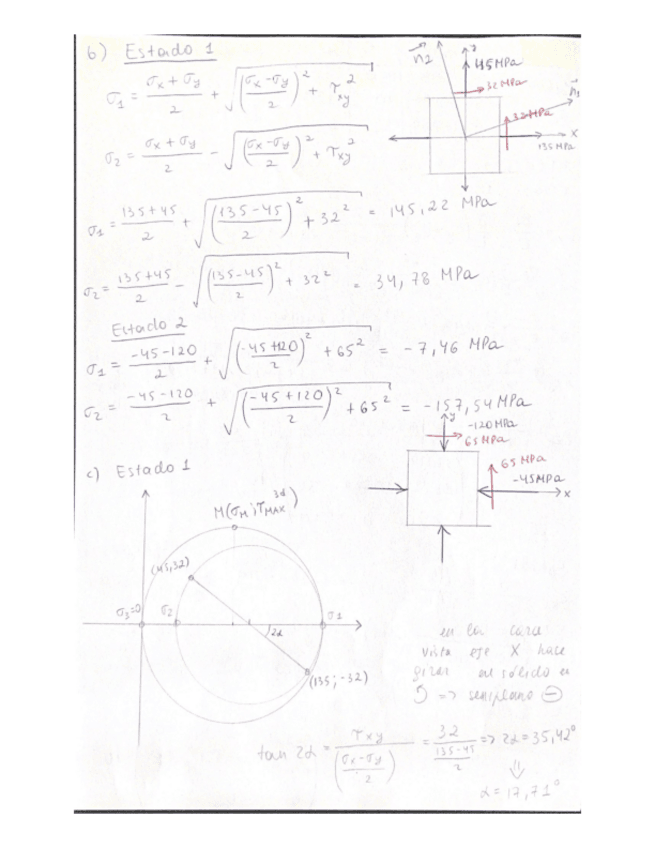 b) Estado 1
σ1 = (σx + σy)/2 + √(((σx - σy)/2)² + τxy²)
σ2 = (σx + σy)/2 - √(((σx - σy)/2)² + τxy²)
n2 y 45MPa
32MPa
32MPa n1
x
135MPa
σ1 = (135+45)/2 + √(((135-45)/2)² + 32²) = 145,22 MPa
σ2 = (135+45)/2 - √(((135-45)/2)² + 32²) = 34,78 MPa
Estado 2
σ1 = (-45-120)/2 + √(((-45+120)/2)² + 65²) = -7,46 MPa
σ2 = (-45-120)/2 + √(((-45+120)/2)² + 65²) = -157,54 MPa
y -120MPa
65MPa
65MPa
-45MPa
x
c) Estado 1
M(σM; τMAX 3d)
(45,32)
σ3=0 σ2 σ1
2α
(135;-32)
en la cara
vista eje X hace
girar al sólido en
=> semiplano ⊖
tan 2α = τxy/((σx-σy)/2) = 32/((135-45)/2) => 2α = 35,42°
⇓
α = 17,71°